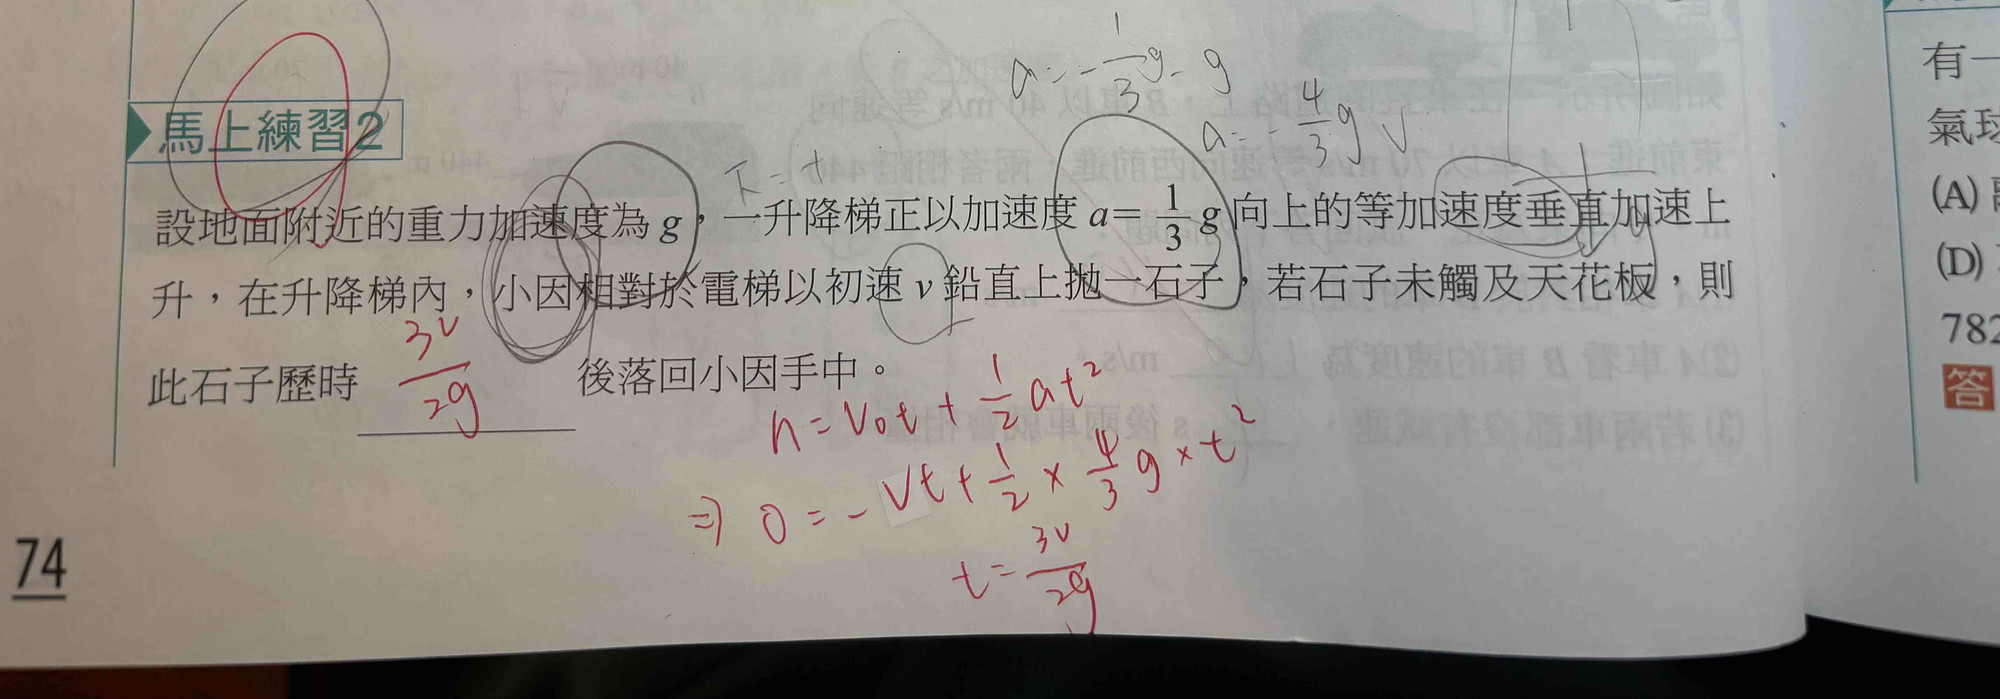 馬上練習2
a = -1/3 g - g
a = -4/3 g
下 = +
設地面附近的重力加速度為 g，一升降梯正以加速度 a= 1/3 g 向上的等加速度垂直加速上
升，在升降梯內，小因相對於電梯以初速 v 鉛直上拋一石子，若石子未觸及天花板，則
此石子歷時 3v/2g 後落回小因手中。
h = V₀t + 1/2 at²
⇒ 0 = -Vt + 1/2 × 4/3 g × t²
t = 3v/2g
74
有一
氣球
(A)
(D)
782
答